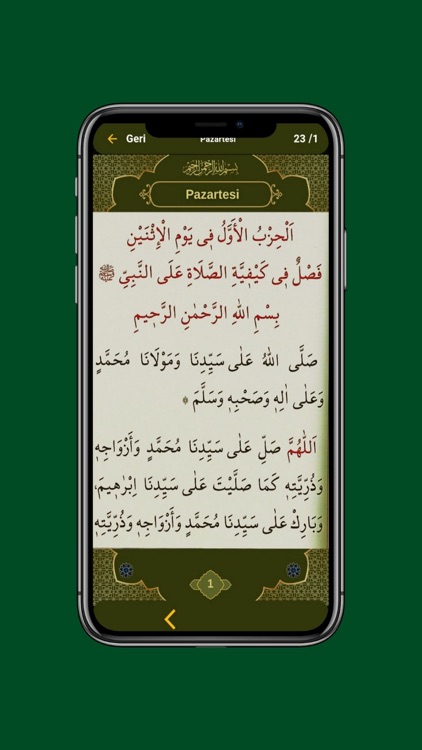 Geri
Pazartesi
23 /1
بسم الله الرحمن الرحيم
Pazartesi
اَلْحِزْبُ الْأَوَّلُ فِي يَوْمِ الْإِثْنَيْنِ
فَصْلٌ فِي كَيْفِيَّةِ الصَّلَاةِ عَلَى النَّبِيِّ ﷺ
بِسْمِ اللهِ الرَّحْمٰنِ الرَّحِيمِ
صَلَّى اللهُ عَلٰى سَيِّدِنَا وَمَوْلَانَا مُحَمَّدٍ
وَعَلٰى اٰلِهٖ وَصَحْبِهٖ وَسَلَّمَ
اَللّٰهُمَّ صَلِّ عَلٰى سَيِّدِنَا مُحَمَّدٍ وَأَزْوَاجِهٖ
وَذُرِّيَّتِهٖ كَمَا صَلَّيْتَ عَلٰى سَيِّدِنَا اِبْرٰهِيمَ،
وَبَارِكْ عَلٰى سَيِّدِنَا مُحَمَّدٍ وَأَزْوَاجِهٖ وَذُرِّيَّتِهٖ
1